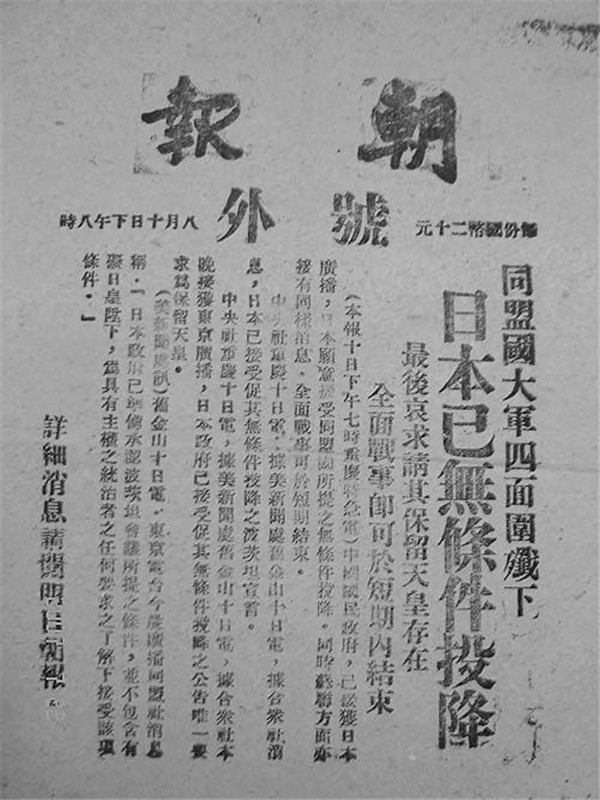 朝報
號外
每份國幣二十元
八月十日下午八時
同盟國大軍四面圍殲下
日本已無條件投降
最後哀求請其保留天皇存在
全面戰事卽可於短期內結束
（本報十日下午七時重慶特急電）中國國民政府，已接獲日本
廣播，日本願意接受同盟國所提之無條件投降。同時蘇聯方面亦
接有同樣消息。全面戰事可於短期結束。
中央社重慶十日電，據美新聞處舊金山十日電，據合衆社消
息，日本已接受促其無條件投降之波茨坦宣言。
中央社重慶十日電，據美新聞處舊金山十日電，據合衆社本
晚接獲東京廣播，日本政府已接受促其無條件投降之公告唯一要
求爲保留天皇。
（美新聞處訊）舊金山十日電。東京電台今晨廣播同盟社消息
稱：「日本政府已準備承認波茨坦會議所提之條件，並不包含有
礙日皇陛下，爲具有主權之統治者之任何要求之了解下接受該項
條件。」
詳細消息請閱明日朝報。